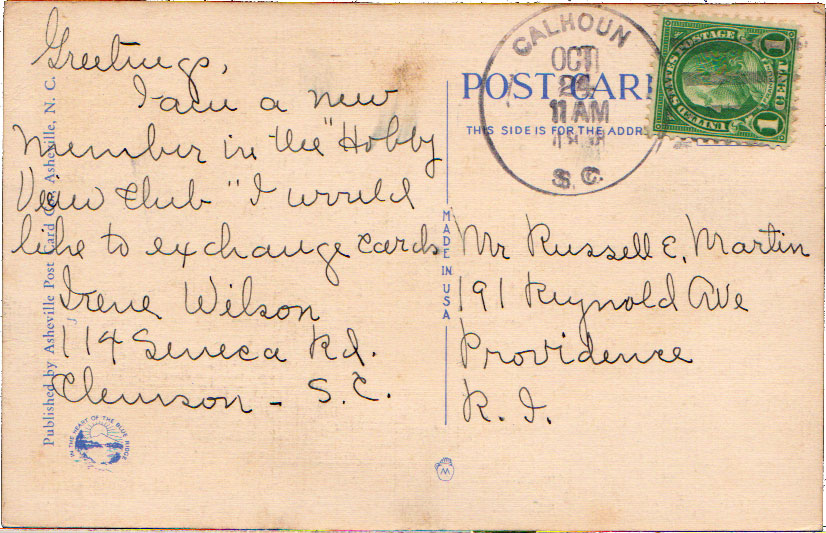 Greetings,
I am a new
member in the "Hobby
View Club" I would
like to exchange cards
Irene Wilson
114 Seneca Rd.
Clemson - S.C.
Published by Asheville Post Card Co., Asheville, N. C.
IN THE HEART OF THE BLUE RIDGE
MADE IN USA
W
CALHOUN
OCT
24
11 AM
S.C.
POST CARD
THIS SIDE IS FOR THE ADDR
UNITED STATES POSTAGE
1 1
Mr Russell E. Martin
191 Reynold Ave
Providence
R. I.